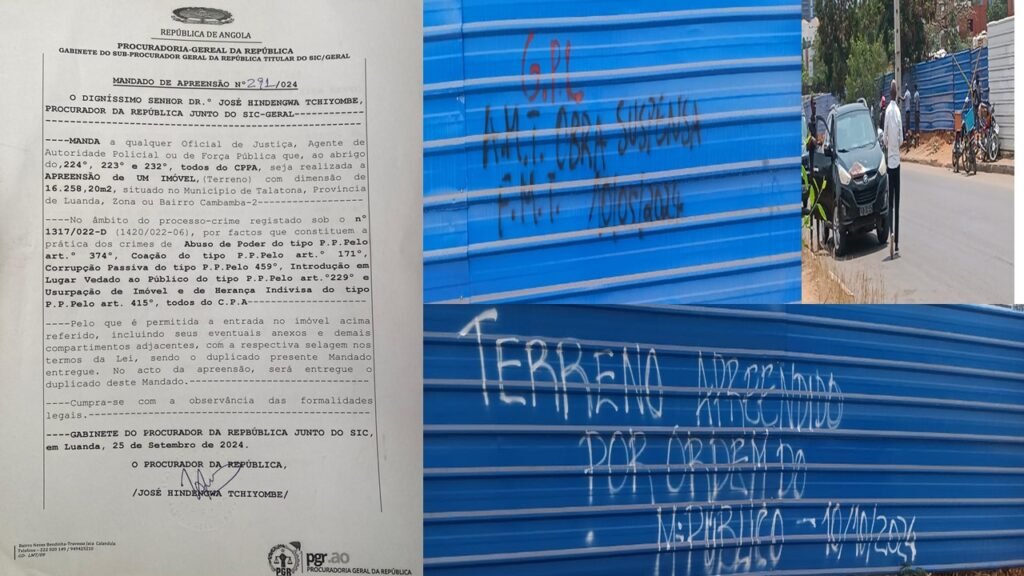 REPÚBLICA DE ANGOLA
PROCURADORIA-GEREAL DA REPÚBLICA
GABINETE DO SUB-PROCURADOR GERAL DA REPÚBLICA TITULAR DO SIC/GERAL
MANDADO DE APREENSÃO Nº 291/024
O DIGNÍSSIMO SENHOR DR.º JOSÉ HINDENGWA TCHIYOMBE,
PROCURADOR DA REPÚBLICA JUNTO DO SIC-GERAL
----MANDA a qualquer Oficial de Justiça, Agente de
Autoridade Policial ou de Força Pública que, ao abrigo
do,224º, 223º e 232º, todos do CPPA, seja realizada a
APREENSÃO de UM IMÓVEL,(Terreno) com dimensão de
16.258,20m2, situado no Município de Talatona, Província
de Luanda, Zona ou Bairro Cambamba-2
----No âmbito do processo-crime registado sob o nº
1317/022-D (1420/022-06), por factos que constituem a
prática dos crimes de Abuso de Poder do tipo P.P.Pelo
art.º 374º, Coação do tipo P.P.Pelo art.º 171º,
Corrupção Passiva do tipo P.P.Pelo 459º, Introdução em
Lugar Vedado ao Público do tipo P.P.Pelo art.º229º e
Usurpação de Imóvel e de Herança Indivisa do tipo
P.P.Pelo art. 415º, todos do C.P.A
----Pelo que é permitida a entrada no imóvel acima
referido, incluindo seus eventuais anexos e demais
compartimentos adjacentes, com a respectiva selagem nos
termos da Lei, sendo o duplicado presente Mandado
entregue. No acto da apreensão, será entregue o
duplicado deste Mandado.
----Cumpra-se com a observância das formalidades
legais.
----GABINETE DO PROCURADOR DA REPBÚBLICA JUNTO DO SIC,
em Luanda, 25 de Setembro de 2024.
O PROCURADOR DA REPÚBLICA,
/JOSÉ HINDENGWA TCHIYOMBE/
pgr.ao
PGR PROCURADORIA GERAL DA REPÚBLICA
G.P.L
A.M.T. OBRA SUSPENSA
F.M.T.
TERRENO APREENDIDO
POR ORDEM DO
M. PÚBLICO - 10/10/2024